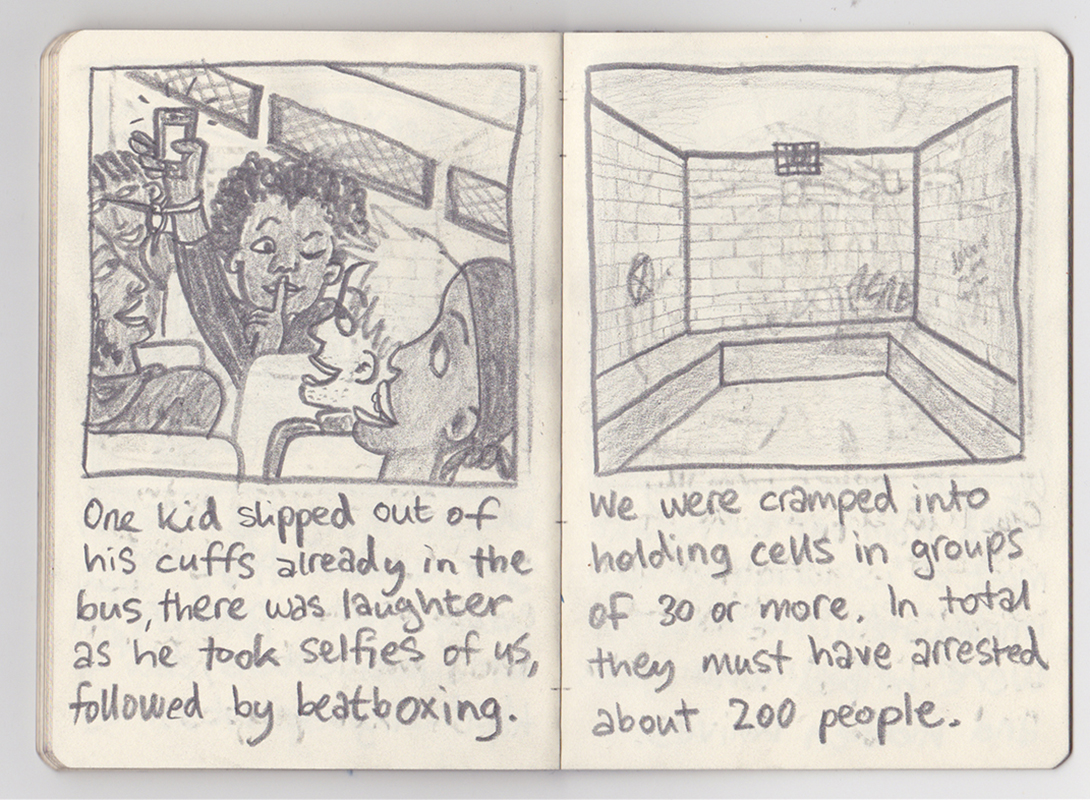 One kid slipped out of
his cuffs already in the
bus, there was laughter
as he took selfies of us,
followed by beatboxing.
We were cramped into
holding cells in groups
of 30 or more. In total
they must have arrested
about 200 people.